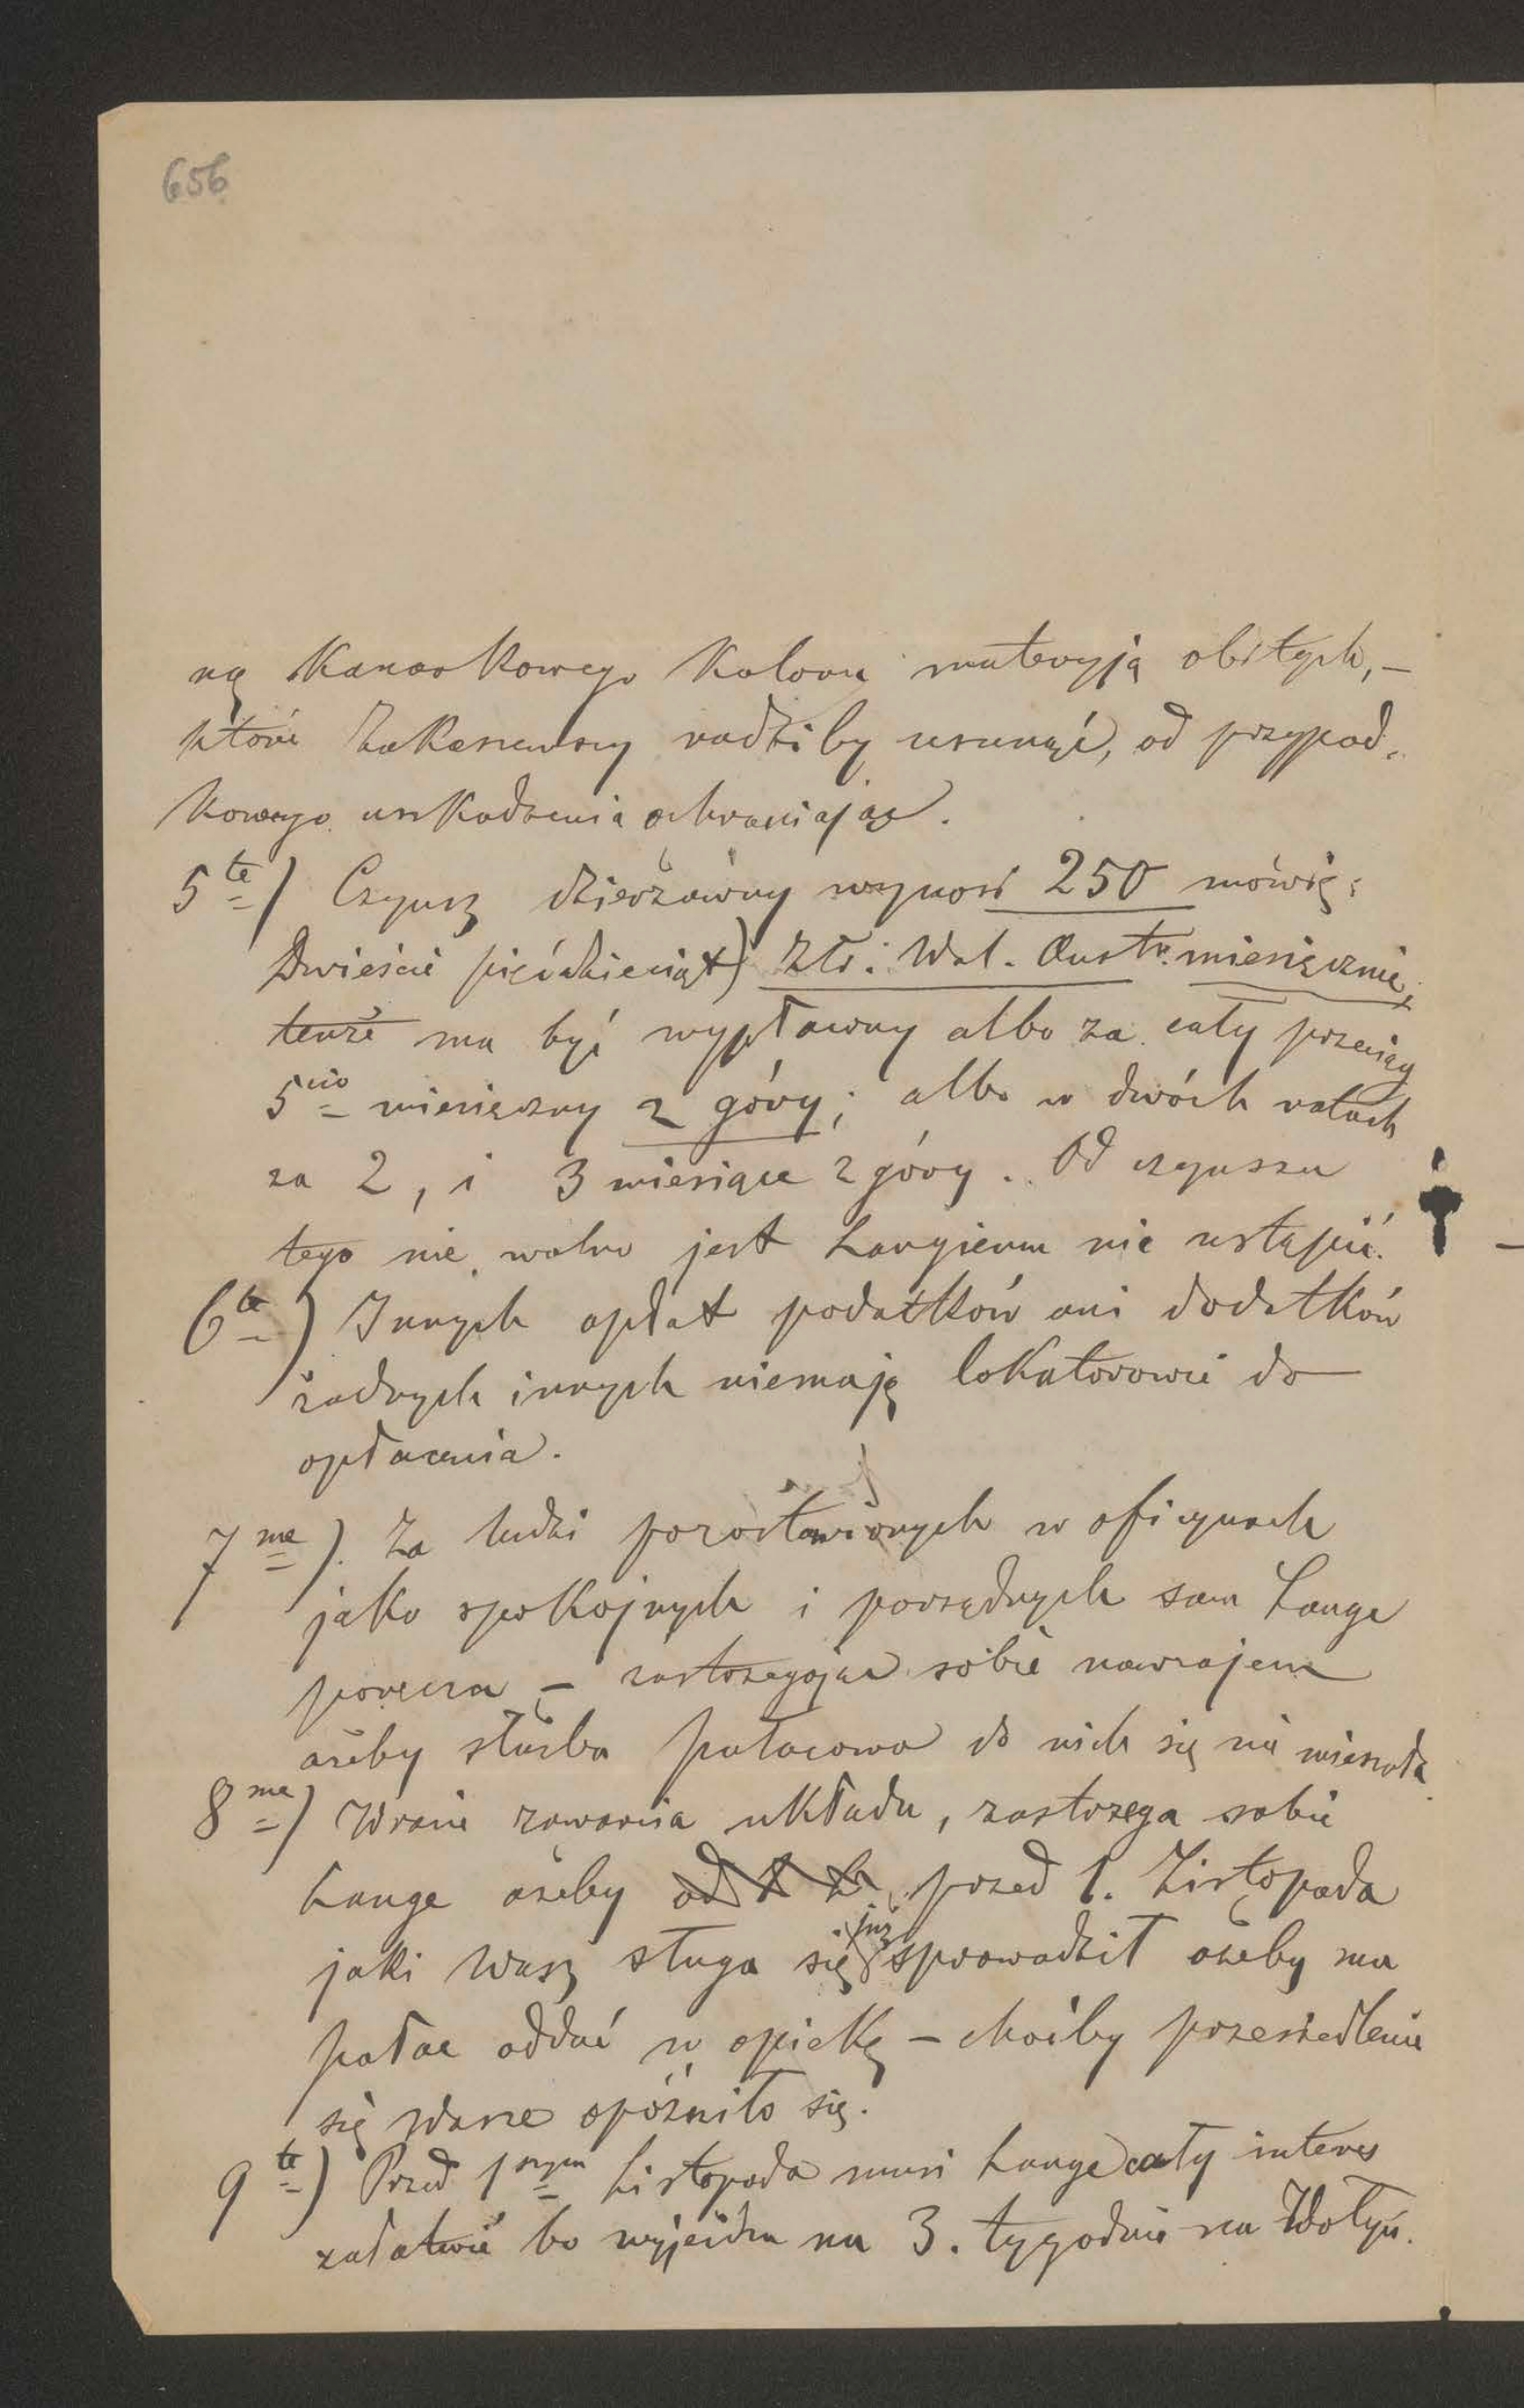 656
ną Kanarkowego Koloru materyją obitych, –
które Zakaszewscy radziby usunąć, od przypad-
kowego uszkodzenia ochraniając.
5te) Czynsz dzierżawny wynosi 250 mówię:
Dwieście pięćdziesiąt) Złr: Wal. Austr. miesięcznie,
tenże ma być wypłacony albo za cały przeciąg
5cio miesięczny z góry; albo w dwóch ratach
za 2, i 3 miesiące z góry. Od czynszu
tego nie wolno jest Langiemu nic ustąpić.
6te) Innych opłat podatków ani dodatków
żadnych innych niemają lokatorowie do
opłacenia.
7me). Za ludzi pozostawionych w oficynach
jako spokojnych i porządnych sam Lange
poręcza – zastrzegając sobie nawzajem
ażeby służba pałacowa do nich się nie mieszała
8me) Wrazie zawarcia układu, zastrzega sobie
Lange ażeby od 1 L. przed 1. Listopada
jaki Wasz sługa się już sprowadził ażeby mu
pałac oddać w opiekę – choćby przesiedlenie
się Wasze opóźniło się.
9te) Przed 1szym Listopada musi Lange cały interes
załatwić bo wyjeżdża na 3. tygodnie na Wołyń.